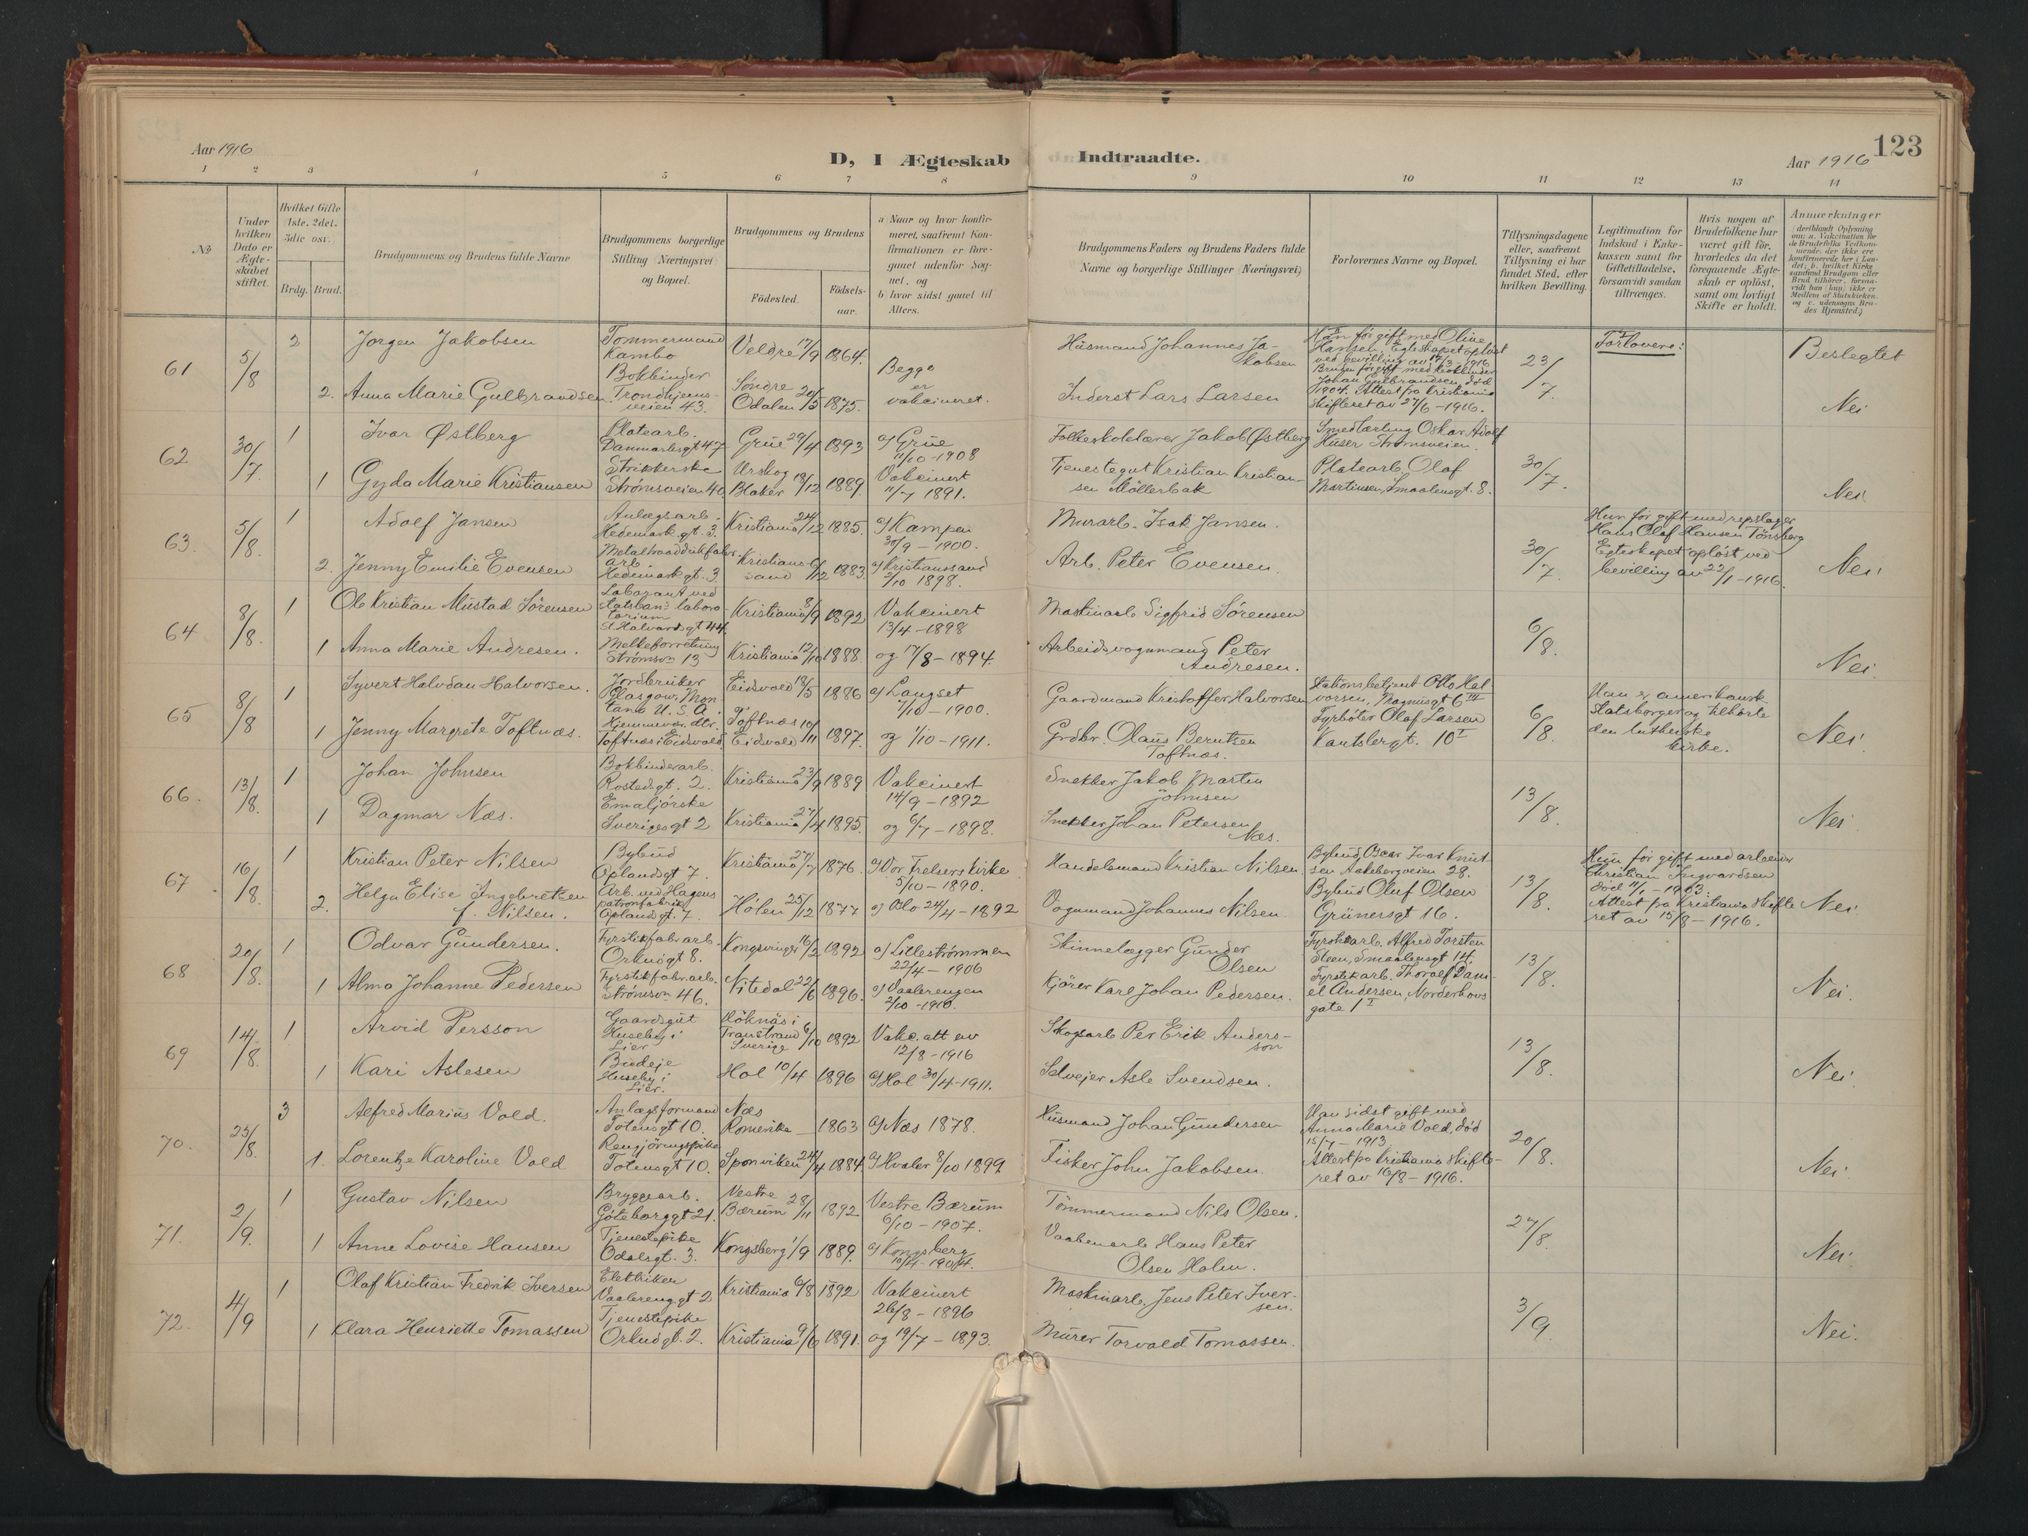 123
Aar 1916
D, I Ægteskab Indtraadte.
Aar 1916
1 2 3 4 5 6 7 8 9 10 11 12 13 14
№
Under hvilken Dato er Ægteskabet stiftet.
Hvilket Gifte 1ste, 2det, 3die osv.
Brdg. Brud.
Brudgommens og Brudens fulde Navne
Brudgommens borgerlige Stilling Næringsvei og Bopæl.
Brudgommens og Brudens
Fødested.
Fødselsaar.
a Naar og hvor konfirmeret, saafremt Konfirmationen er foregaaet udenfor Sognet, og
b hvor sidst gaaet til Alters.
Brudgommens Faders og Brudens Faders fulde Navne og borgerlige Stillinger Næringsvei)
Forlovernes Navne og Bopæl.
Tillysningsdagene eller, saafremt Tillysning ei har fundet Sted, efter hvilken Bevilling.
Legitimation for Indskud i Enkekassen samt for Giftetilladelse, forsaavidt saadan tiltrænges.
Hvis nogen af Brudefolkene har været gift før, hvorledes da det foregaaende Ægteskab er opløst, samt om lovligt Skifte er holdt.
Anmærkninger
61 5/8 2 Jørgen Jakobsen Tømmermand Kambo Veldre 17/9 1864. Husmand Johannes Jakobsen Han før gift med Oline Hansen. Egteskapet opløst ved bevilling av 14/3 1916. 23/7 Forlovere: Beslegtet
2. Anna Marie Gulbrandsen. Bokbinder Trondhjemsveien 43. Søndre Odalen 20/5 1875. Begge er vakcineret. Inderst Lars Larsen Bruden før gift med Johan Gulbrandsen, død 1904. Attest fra Kristiania skifteret av 27/6-1916. Nei
62 30/7 1 Ivar Østberg Platearb. Danmarksgt 47 Grue 29/4 1893 a) Grue 11/10-1908 Folkeskolelærer Jakob Østberg Smedlærling Oskar Adolf Huser Strømsveien 30/7
1 Gyda Marie Kristiansen Strikkerske Strømsveien 40 Urskog Blaker 18/12 1889. Vakcinert 11/7 1891. Tjenestegut Kristian Kristiansen Møllerbak Platearb. Olaf Martinsen, Smaalensgt. 8. Nei
63. 5/8. 1 Adolf Jansen Anlægsarb. Hedemarkgt. 3. Kristiania 24/12 1885. a) Kampen 30/9-1900. Murarb. Isak Jansen. 30/7 Hun før gift med repslager Hans Olaf Hansen Tønsberg
2. Jenny Emilie Evensen arb. Hedemarkgt. 3 Kristianssand 6/12 1883. a) Kristianssand 2/10 1898. Arb. Peter Evensen. Egteskapet opløst ved bevilling av 22/1-1916. Nei
64 8/8. 1 Ole Kristian Mustad Sørensen Laborant ved laboratorium St Halvardsgt 44. Kristiania 8/9 1892 Vakcinert 13/4-1898 Maskinarb Sigfrid Sørensen 6/8.
1 Anna Marie Andresen. Melkeforretning Strømsvn 13 Kristiania 12/10 1888. og 17/8-1894. Arbeidsvognmand Peter Andresen. Nei
65 8/8 1 Syvert Halvdan Halvorsen. Jordbruker Glasgow, Montana U.S.A. Eidsvold 18/5 1886 a) Langset 7/10-1900. Gaardmand Kristoffer Halvorsen Stationsbetjent Otto Halvorsen, Magnusgt 6 III 6/8. Han er amerikansk statsborger og tilhørte den lutherske kirke.
1 Jenny Margrete Toftnæs. Hjemmevær. dtr. Toftnæs i Eidsvold Toftnæs Eidsvold 10/11 1897. og 1/10-1911. Grdbr. Olaus Berntsen Toftnæs. Fyrbøter Olaf Larsen Kantsbergt. 10 I Nei
66. 13/8. 1 Johan Johnsen Bokbinderarb. Rostedsgt. 2. Kristiania 23/9 1889 Vakcinert 14/9-1892 Snekker Jakob Martin Johnsen 13/8.
1 Dagmar Næs. Emaljørske Sverigesgt 2 Kristiania 27/4 1895. og 6/7-1898. Snekker Johan Petersen Næs. Nei
67 16/8. 1 Kristian Peter Nilsen Bybud Oplandsgt 7. Kristiania 27/7 1876. a) Vor Frelsers kirke 5/10-1890. Handelsmand Kristian Nilsen Bybud Oscar Ivar Knutsen Aakebergveien 28. 13/8. Hun før gift med arbeider Christian Ingvardsen død 11/1-1903.
2. Helga Elise Ingebretsen f. Nilsen. Arb. ved Hagens patronfabrik Oplandgt. 7. Hølen 25/12 1877 a) Oslo 24/4-1892 Vognmand Johannes Nilsen. Bybud Oluf Olsen Grünersgt 16. Attest fra Kristiania skifteret av 15/8-1916. Nei
68 20/8. 1 Odvar Gundersen. Fyrstikfabr arb. Orknøgt 8. Kongsvinger 16/2 1892 a) Lillestrømmen 22/4-1906 Skinnelægger Gunder Olsen Fyrstikarb. Alfred Torsten Steen, Smaalensgt 14. 13/8.
1 Alma Johanne Pedersen Fyrstikfabr arb. Strømsvn 46. Nitedal 22/6 1896. a) Vaalerengen 2/10-1910. Kjører Karl Johan Pedersen. Fyrstikarb. Thoralf Daniel Andersen, Norderhovsgate 1 I Nei.
69 14/8. 1 Arvid Persson Gaardsgut Huseby i Lier Transtrand Sverige 6/10 1892 Vakc. att av 12/8-1916 Skogsarb Per Erik Andersson 13/8.
1 Kari Aslesen Budeje Huseby i Lier. Hol 10/4 1896 a) Hol 30/4-1911. Selveier Asle Svendsen. Nei
70. 25/8. 3 Alfred Marius Vold. Anlægsformand Totensgt 10. Næs Romerike 1863 a) Næs 1878. Husmand Johan Gundersen Han sidst gift med Anna Marie Vold, død 15/7-1913. 20/8.
1. Lorentze Karoline Vold Rengjøringspike Totensgt 10. Sponviken 24/4 1884 a) Hvaler 8/10 1899 Fisker John Jakobsen. Attest fra Kristiania skifteret av 10/8-1916. Nei
71. 2/9. 1 Gustav Nilsen Bryggearb. Göteborggt 21. Vestre Bærum 28/11 1892 Vestre Bærum 6/10-1907. Tømmermand Nils Olsen. 27/8.
1 Anne Lovise Hansen Tjenestepike Odalsgt. 3. Kongsberg 1/9 1889. a) Kongsberg 10/4-1904. Vaabenarb Hans Peter Olsen Holm. Nei
72. 4/9 1 Olaf Kristian Fredrik Iversen Elektriker Vaalerenggt 2 Kristiania 6/8 1892 Vakcinert 26/8-1896 Maskinarb. Jens Peter Iversen. 3/9.
1 Clara Henriette Tomassen Tjenestepike Orknøgt. 2. Kristiania 9/6 1891. og 19/7-1893. Murer Torvald Tomassen. Nei.